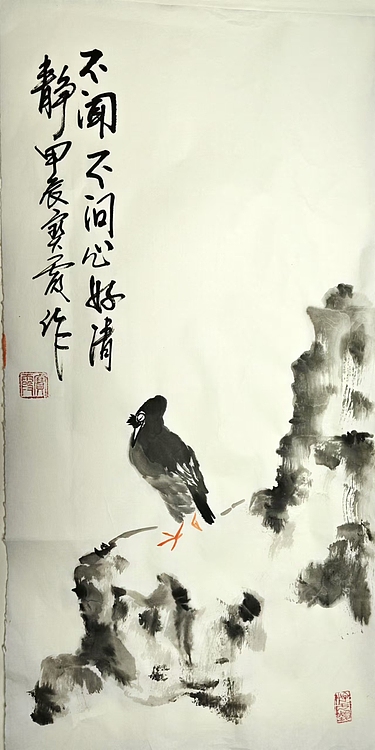 不闻不问心好清
静甲辰宝霞作